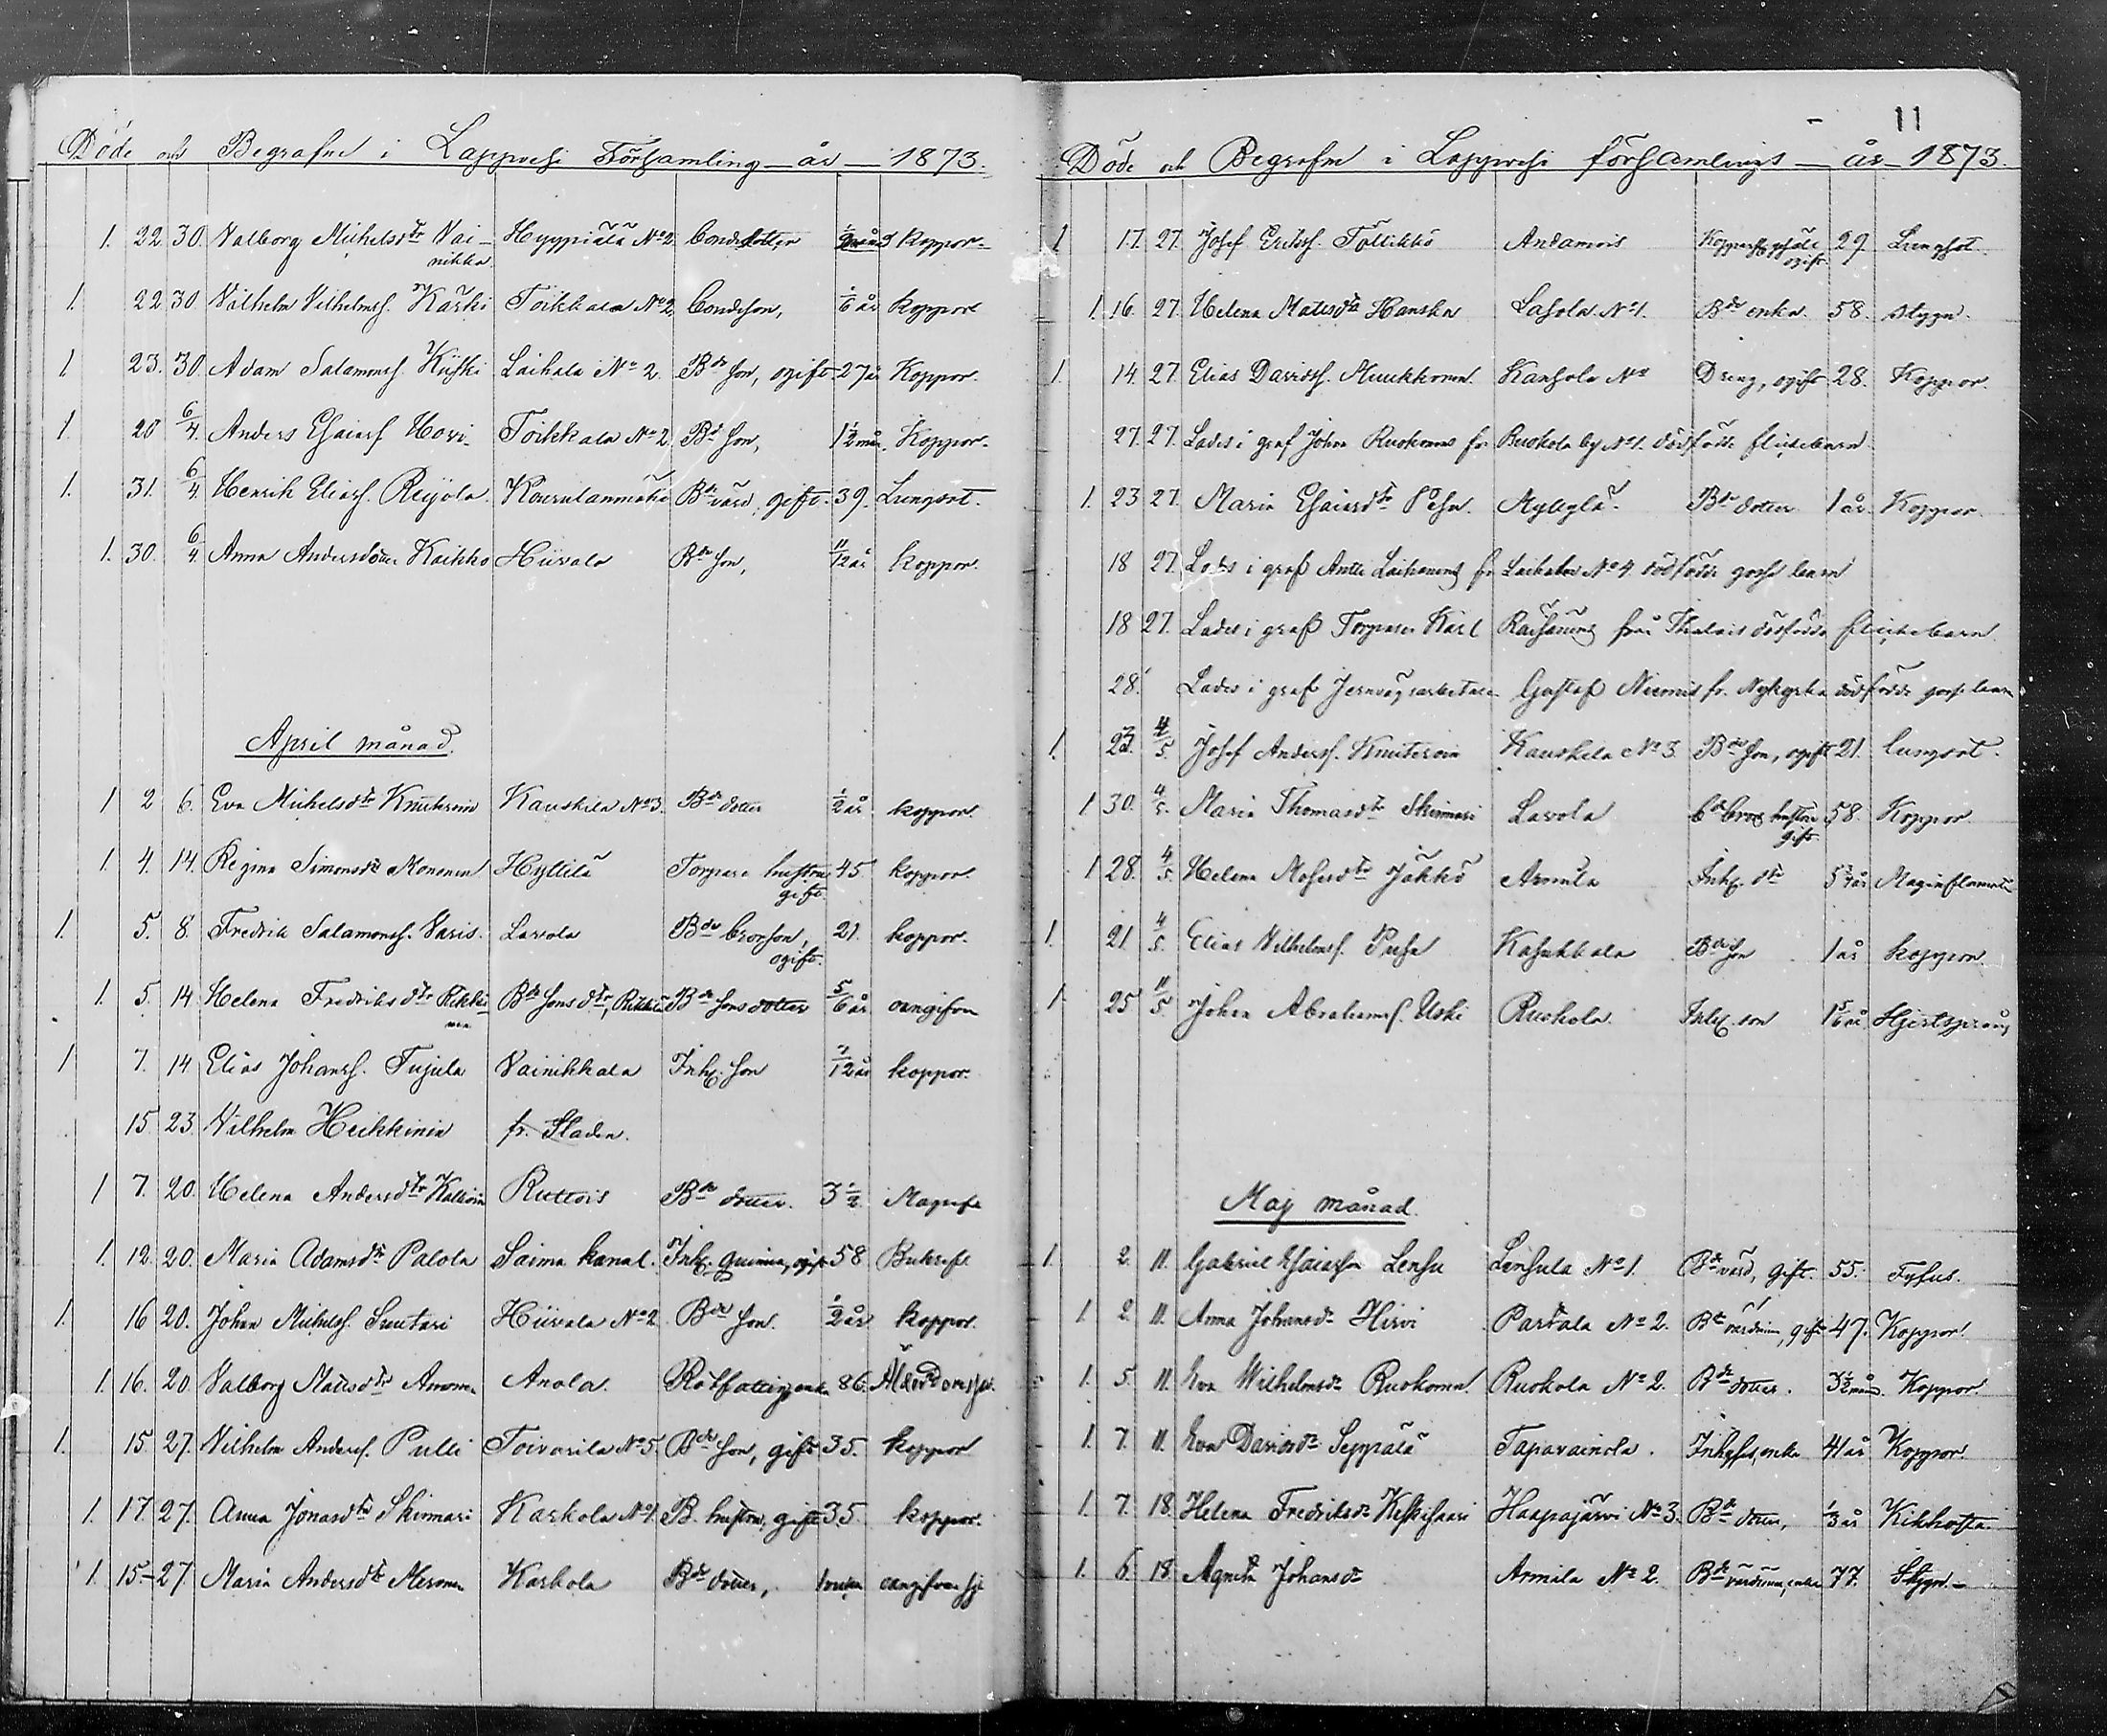 Döde och Begrafne i Lappvesi Församling - år - 1873.
1. 22 30. Valborg Michelsdtr Vai- Hyypiälä No 2 bondedotter koppor
nikka
1. 22 30 Vilhelm Vilhelmss. Kärki Toikkala No 2, bondeson, 1/6 år koppor
1 23. 30. Adam Salamonss. Laihala No 2. Bde son, ogift 27 år Koppor.
1. 20 6/4. Anders Esaiass Hovi Toikkala No 2 Bde son, 1 1/2 mån. Koppor.
1. 31. 6/4. Henrik Eliass. Reijola. Kourulanmäki Bde värd, gift. 39. Lungsot.
1. 30. 6/4. Anna Andersdotter Kaikko Hiivala Bde son, 11/12 år koppor.
April månad.
1 2 6. Eva Michelsdtr Kauskila No 3. Bde dotter 1/2 år koppor.
1 4. 14. Regina Simonsdtr Mononen Hyttilä Torpare hustru 45. koppor.
gift.
1. 5. 8. Fredrik Salamonss. Varis. Lavola Bde brorson, 21. koppor.
ogift.
1. 5. 14 Helena Fredriksdtr Rikki- Bde sonsdtr, Bde sonsdotter 5/6 år oangifven
nen
1 7. 14 Elias Johanss. Tujula Vainikkala Inh. son 7/12 år koppor.
15 23. Vilhelm Heikkinen fr. Staden.
1 7. 20. Helena Andersdtr Ruttois Bde dotter. 3 1/2
1. 12. 20. Maria Adamsdtr Palola Saima kanal. Inh. qvinna, ogift 58
1. 16 20. Johan Michelss. Suutari Hiivala No 2 Bde son. 1/2 år koppor.
1. 16. 20. Valborg Matsdtr Anola. Rotfattig enka 86. Ålderdomssv.
1. 15. 27. Vilhelm Anderss. Pulli Toivarila No 5. Bde son, gift 35. koppor
1. 17. 27. Anna Jonasdtr Skinnari Karkola No 1. B. hustru, gift 35. koppor.
1. 15.-27. Maria Andersdtr Meronen Karkola Bde dotter,
11
Döde och Begrafne i Lappvesi församlings - år - 1873.
1 17. 27. Josef Erikss. Töllikkö Andamois 29. Lungsot.
ogift.
1. 16. 27. Helena Matsdtr Hanska Lasola No 1. Bde enka. 58. Stygn.
1. 14. 27. Elias Davidss. Muukkonen. Kansola No Dreng, ogift 28. Koppor.
27. 27. Lades i graf Johan Ruokonens fr. Ruohola by No 1. dödfödde flickebarn
1. 23 27. Maria Esaiasdtr Pesu. Myllylä. Bde dotter 1 år. Koppor.
18 27. Lades i graf Antti Laihanens fr Laihala No 4. dödfödde gosse barn
18 27. Lades i graf Torparen Karl Räisänens från dödfödda flickebarn
28. Lades i graf Jernvägsarbetare Gustaf Niemis fr. Nykyrka dödfödde gosse barn
1. 23. 4/5. Josef Anderss. Kauskila No 3. Bde son, ogift 21. lungsot.
1 30. 4/5. Maria Thomasdtr Skinnari Lavola hustru 58. Koppor
gift.
1 28. 4/5. Helena Mosesdtr Jäkkö Armila Inh. dtr Maginflammation
1. 21. 4/5. Elias Vilhelmss. Pusa Kasukkala Bde son 1 år koppor
1 25 11/5. Johan Abrahamss. Uski Ruohola. Inh. son 1 5/6 år Hjertsprång
Maj månad.
1. 2. 11. Gabriel Esaiasson Lensu Lensula No 1. Bde värd, gift. 55. Tyfus.
1 2. 11. Anna Johansdr Hirvi Partala No 2. Bde värdinna, gift 47. Koppor.
1. 5. 11. Eva Wilhelmsdr Ruokonen. Ruohola No 2. Bde dotter. 3 1/2 månad. Koppor.
1. 7. 11. Eva Davidsdr Seppälä Tapavainola. Inhyses, enka 41 år Koppor.
1. 7. 18. Helena Fredriksdr Keskisaari Haapajärvi No 3. Bde dotter, 1/3 år Kikhosta.
1. 6. 18. Agneta Johansdr Armila No 2. Bde värdinna, enka 77. Stygn.-